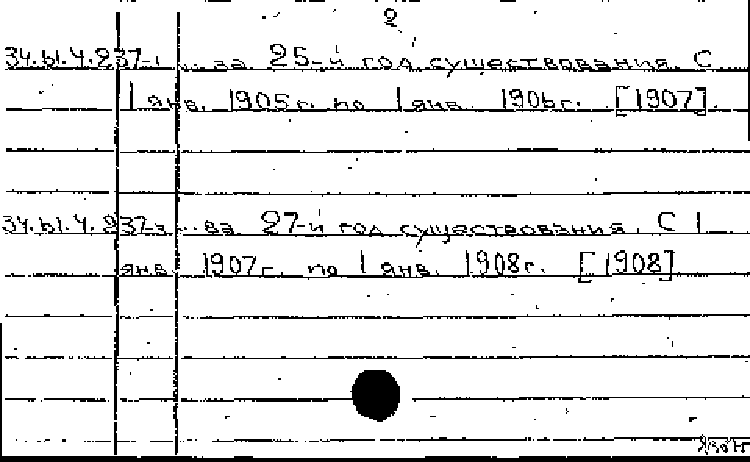 2
34.61.4.237-1 ... за 25-й год существования. С
1 янв. 1905 г. по 1 янв. 1906 г. [1907].
34.61.4.237-3 ... за 27-й год существования. С 1
янв. 1907 г. по 1 янв. 1908 г. [1908]